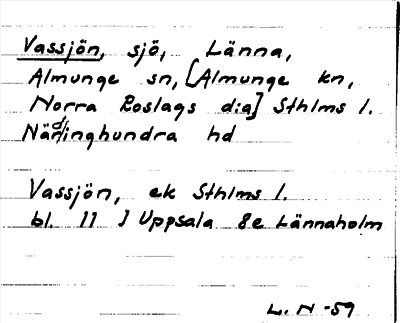 Vassjön, sjö, Länna,
Almunge sn, [Almunge kn,
Norra Roslags d:a] Sthlms l.
Närdinghundra hd
Vassjön, ek Sthlms l.
bl. 11 J Uppsala 8e Lännaholm
L. N -59